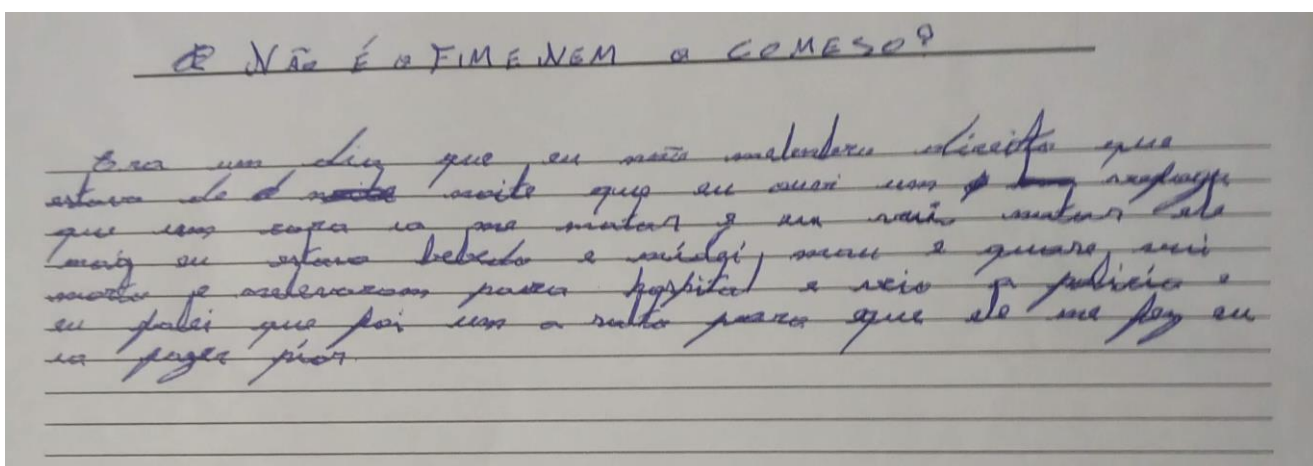 O NÃO É O FIM E NEM O COMESO?
Era um dia que eu não melenbro direito que
estava de noite que eu ouvi um
que um cara ia me matar e eu matar ele
mais eu estava bebedo e mau e quase
morto e melevaram para hospital e veio a policia e
eu falei que foi um a salto para que ele me fez eu
ia fazer pior